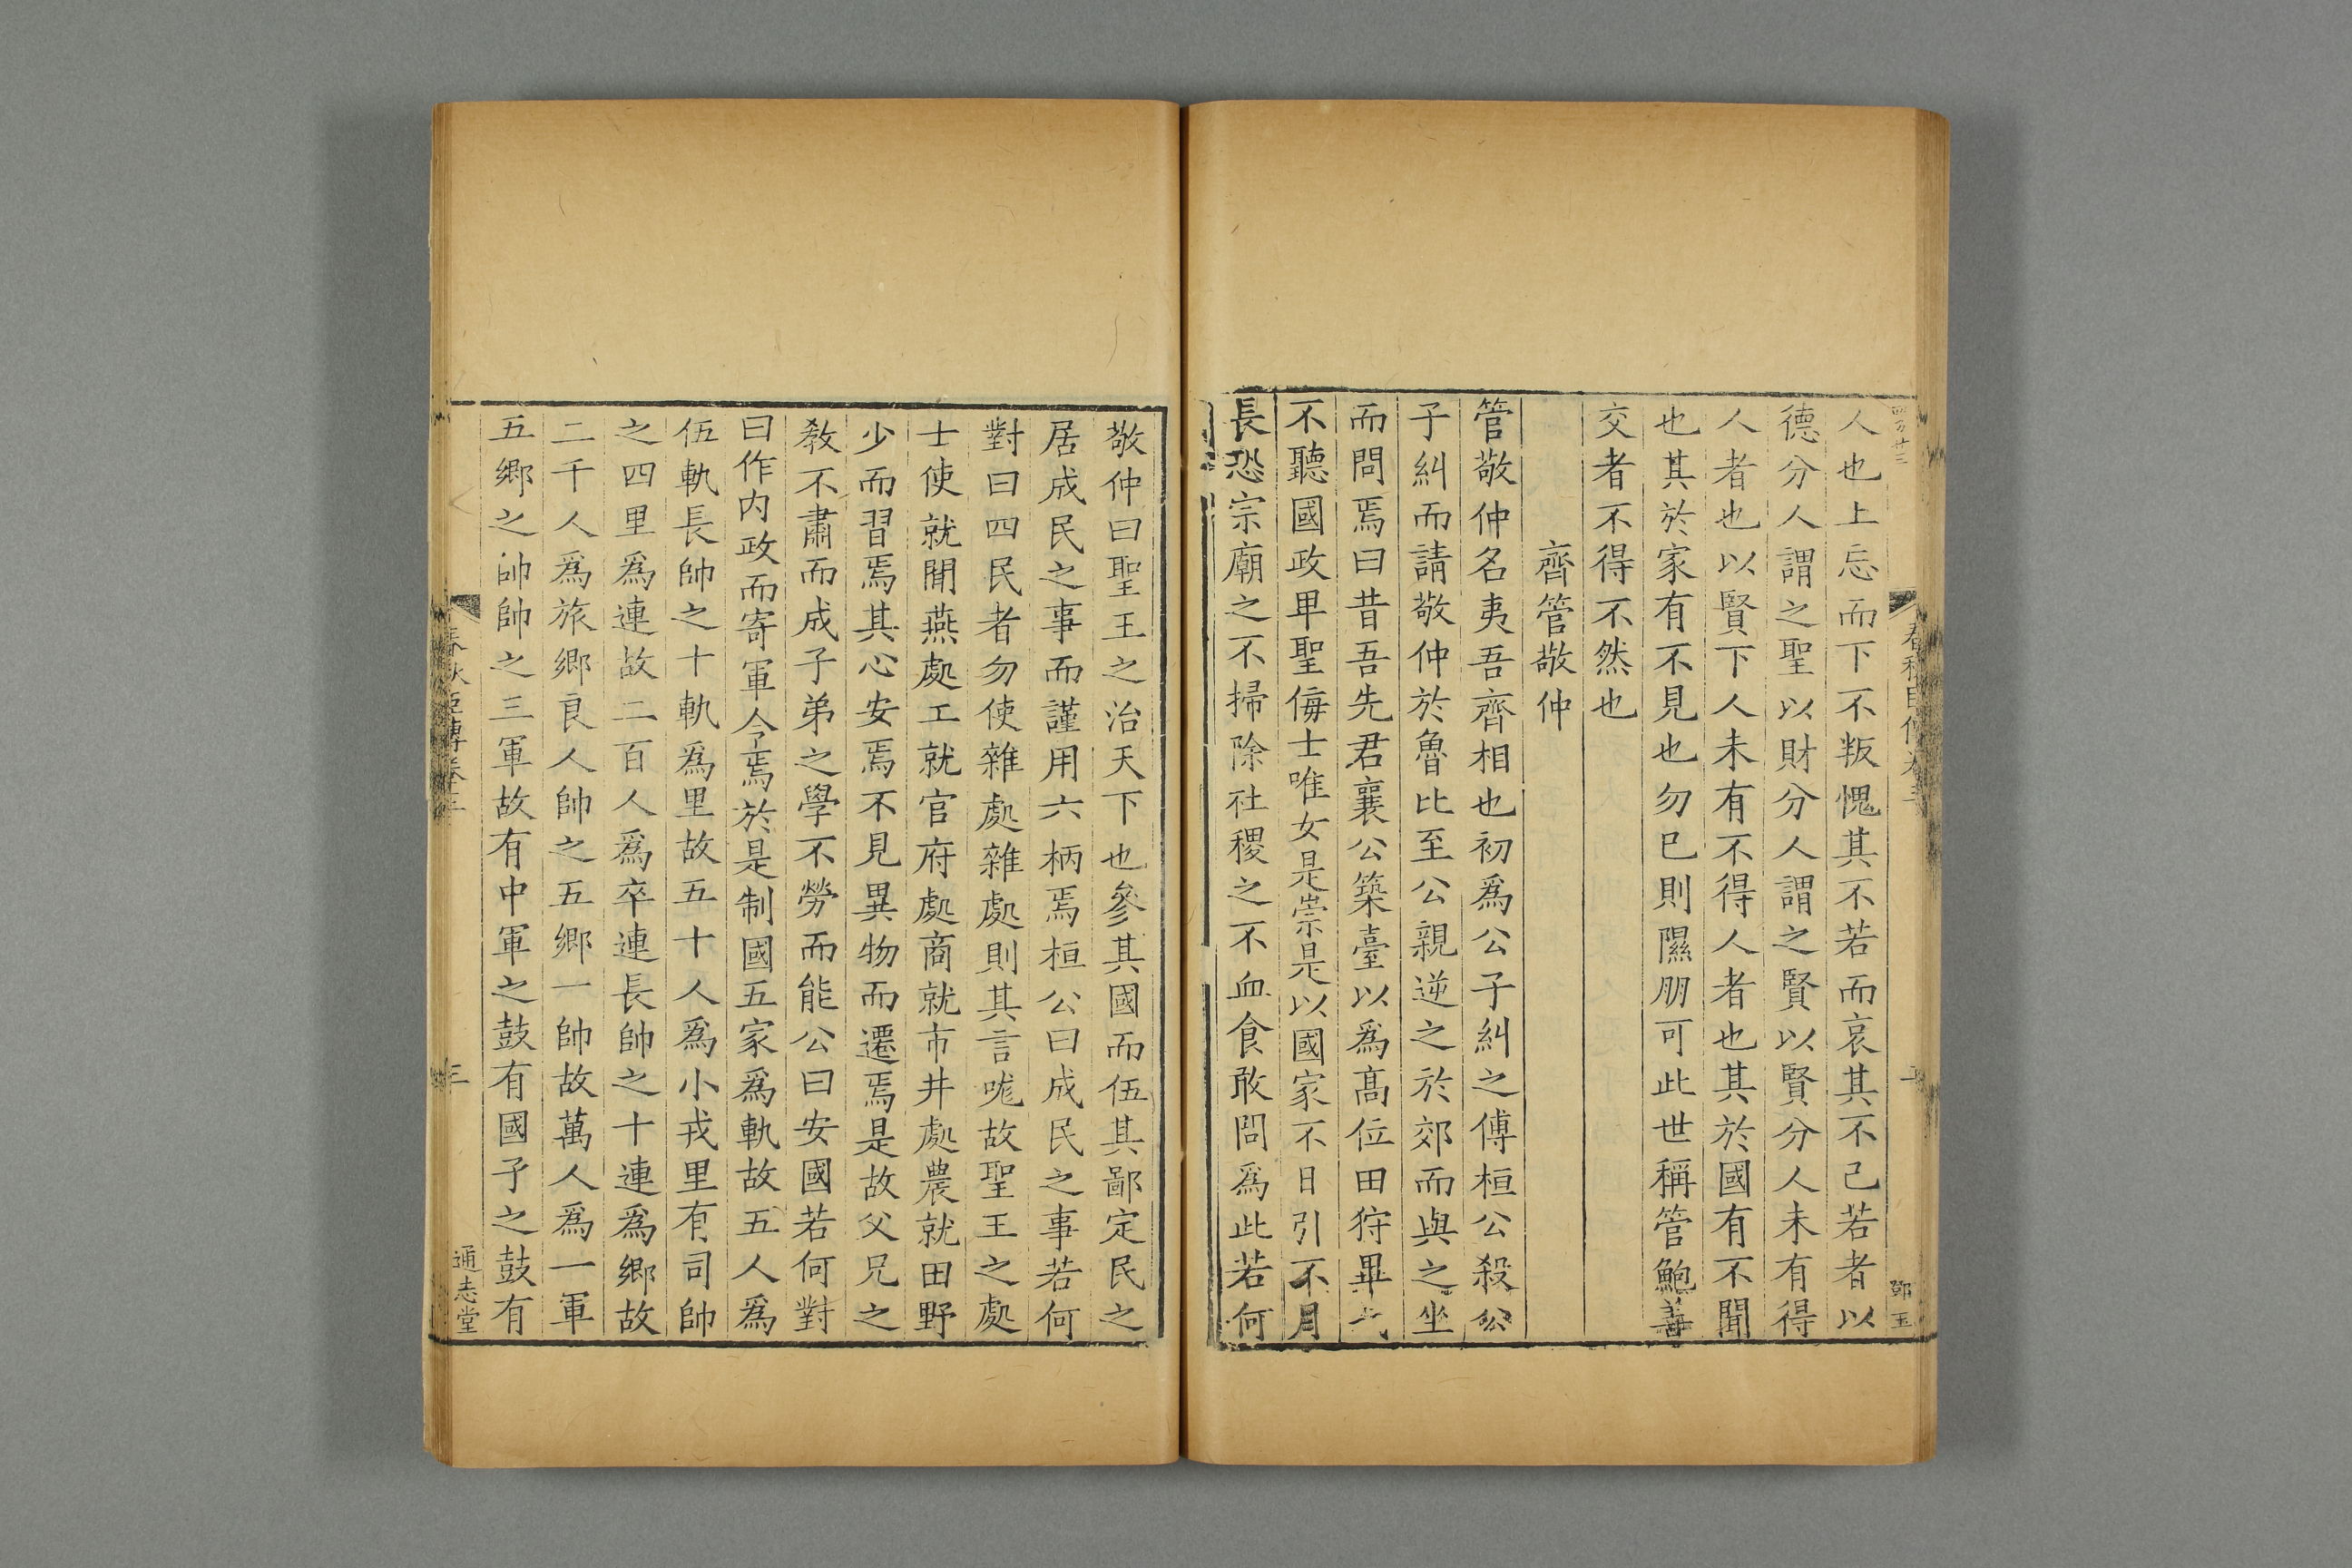 人也上忘而下不叛愧其不若而哀其不己若者以
德分人謂之聖以財分人謂之賢以賢分人未有得
人者也以賢下人未有不得人者也其於國有不聞
也其於家有不見也勿已則隰朋可此世稱管鮑善
交者不得不然也
齊管敬仲
管敬仲名夷吾齊相也初爲公子糾之傅桓公殺公
子糾而請敬仲於魯比至公親逆之於郊而與之坐
而問焉曰昔吾先君襄公築臺以爲高位田狩畢弋
不聽國政卑聖侮士唯女是崇是以國家不日引不月
長恐宗廟之不掃除社稷之不血食敢問爲此若何
敬仲曰聖王之治天下也參其國而伍其鄙定民之
居成民之事而謹用六柄焉桓公曰成民之事若何
對曰四民者勿使雜處雜處則其言哤故聖王之處
士使就閒燕處工就官府處商就市井處農就田野
少而習焉其心安焉不見異物而遷焉是故父兄之
敎不肅而成子弟之學不勞而能公曰安國若何對
曰作内政而寄軍令焉於是制國五家爲軌故五人爲
伍軌長帥之十軌爲里故五十人爲小戎里有司帥
之四里爲連故二百人爲卒連長帥之十連爲鄉故
二千人爲旅鄉良人帥之五鄉一帥故萬人爲一軍
五鄉之帥帥之三軍故有中軍之鼓有國子之鼓有
春秋臣傳卷三
三
通志堂
鄧玉